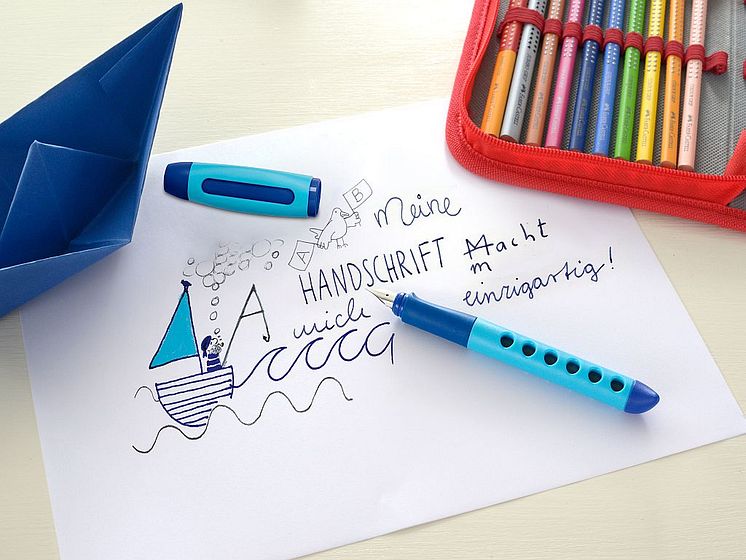 B
Meine
A
HANDSCHRIFT Macht
m
A
mich einzigartig!